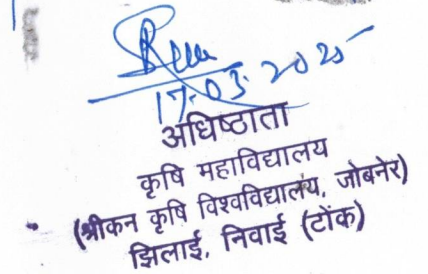 17-03-2025
अधिष्ठाता
कृषि महाविद्यालय
(श्रीकन कृषि विश्वविद्यालय, जोबनेर)
झिलाई, निवाई (टोंक)